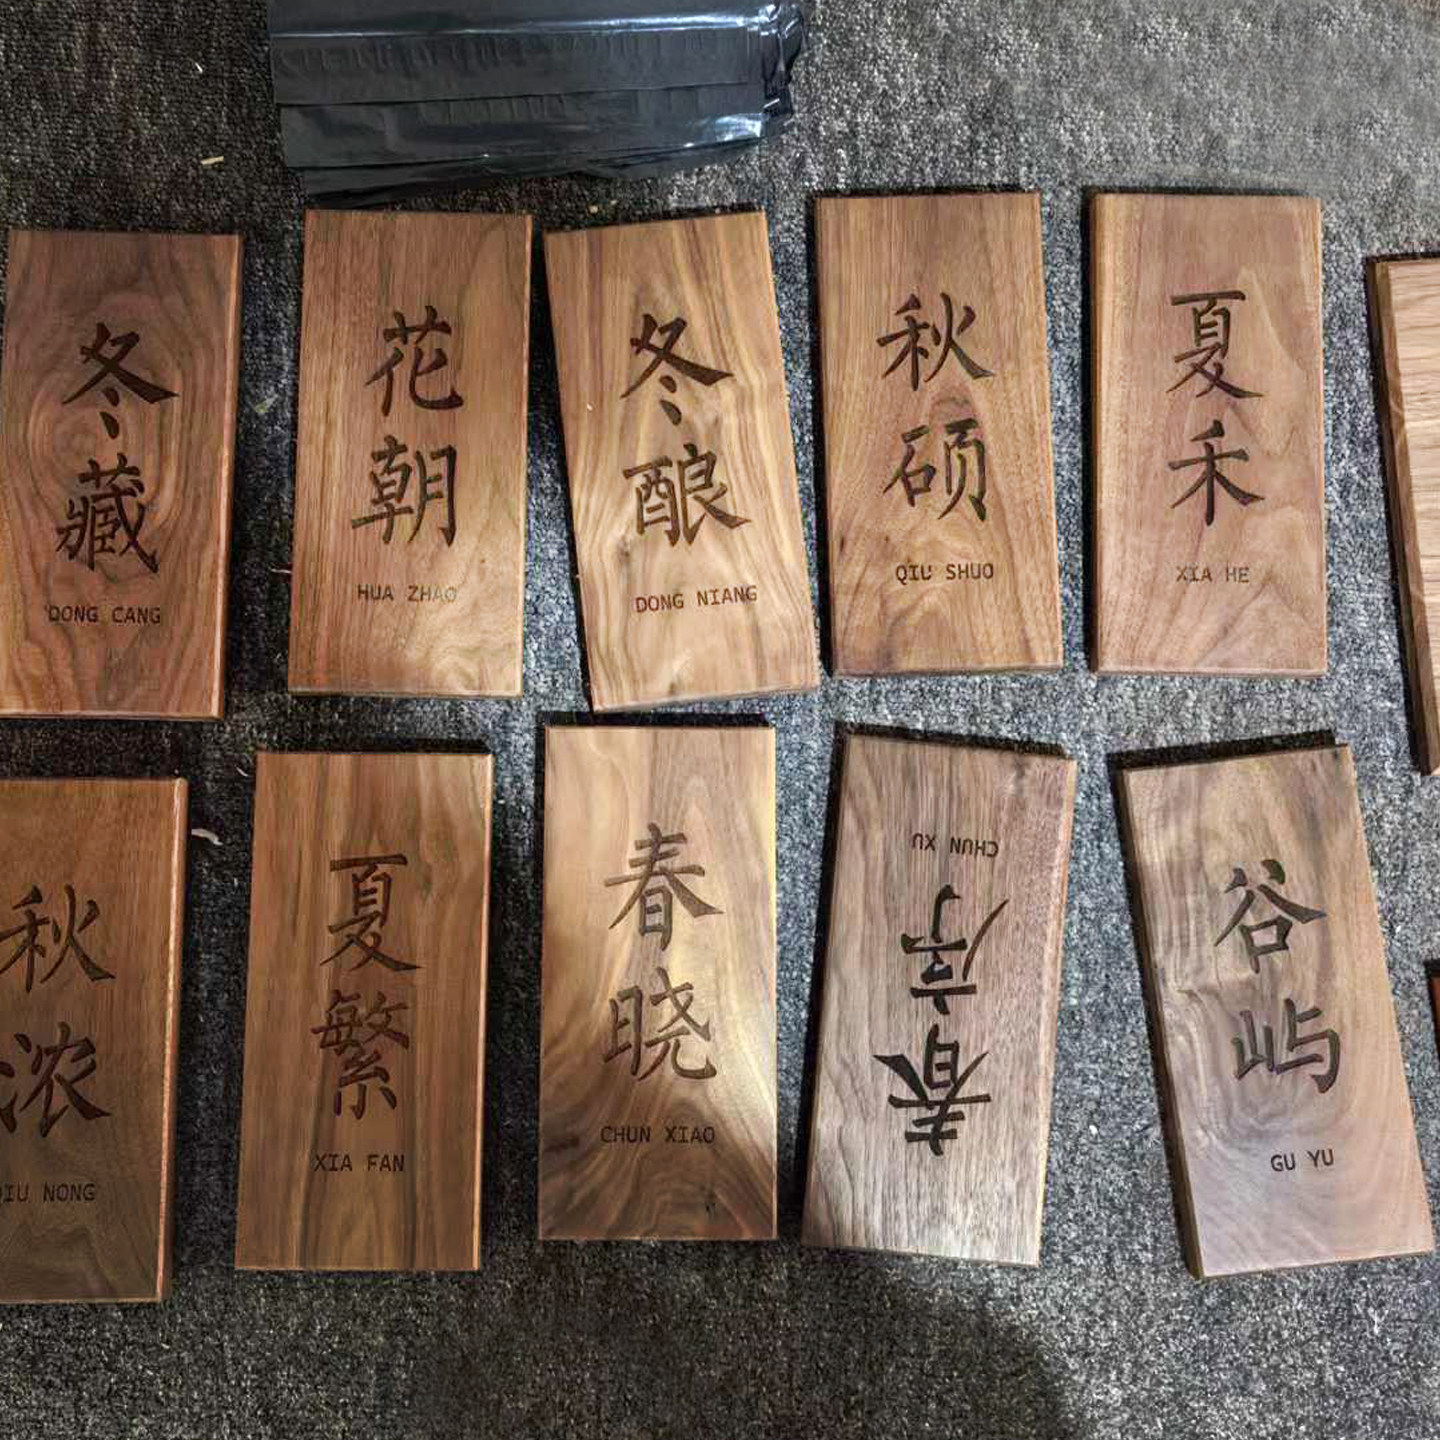 冬
藏
DONG CANG
花
朝
HUA ZHAO
冬
酿
DONG NIANG
秋
硕
QIU SHUO
夏
禾
XIA HE
秋
浓
QIU NONG
夏
繁
XIA FAN
春
晓
CHUN XIAO
春
序
CHUN XU
谷
屿
GU YU